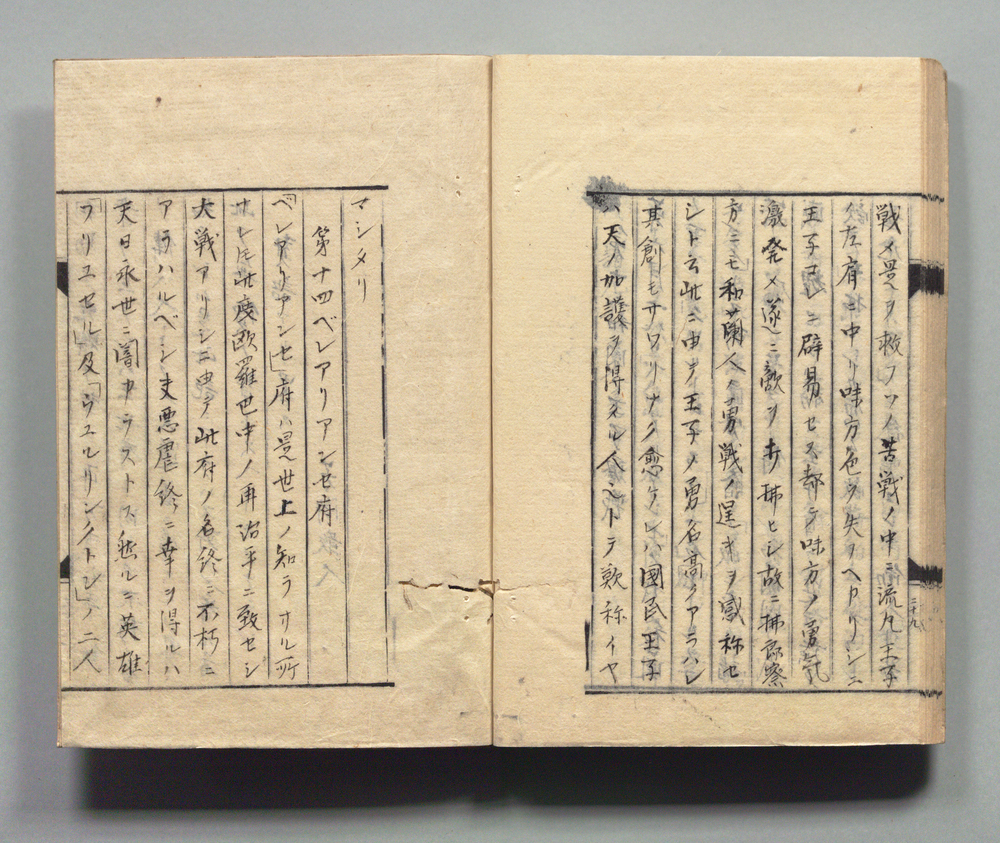 戦メ是ヲ救フソノ苦戦ノ中ニ流丸王子
ノ左肩ニ中リ味方色ヲ失フヘカリシニ
王子コレニ辟易セス都テ味方ノ勇気
激発メ遂ニ敵ヲ打拂ヒシ故ニ拂郎察
方ニモ和蘭人ノ勇戦ノ遅キヲ感称セ
シト云此ニ由テ王子ノ勇名高クアラハレ
其創モサワリナク愈ケレハ國民王子
ハ天ノ加護ヲ得タル人ヘトテ歎称イヤ
二十九
マシタリ
第十四ベレアリアンセ府
「ベレアリアンセ」府ハ是世上ノ知ラサル所
サレ𪜈此度欧羅巴中ノ再治平ニ致セシ
大戦アリシニ由テ此府ノ名終ニ不朽ニ
アラハルベシ夫悪虐終ニ幸ヲ得ルハ
天日永世ニ闇カラストス然ルニ英雄
「フリユセル」及「ウエルリンクトン」ノ二人